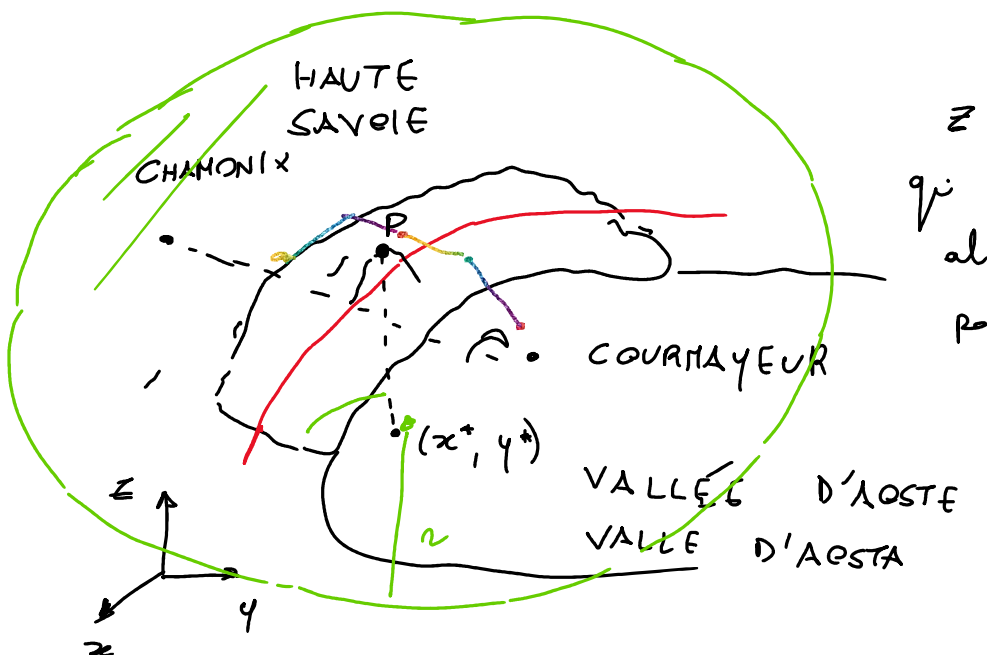 HAUTE
SAVOIE
CHAMONIX
P
z
qi
al
po
COURMAYEUR
(x*, y*)
VALLÉE D'AOSTE
VALLE D'AOSTA
r
z
y
x